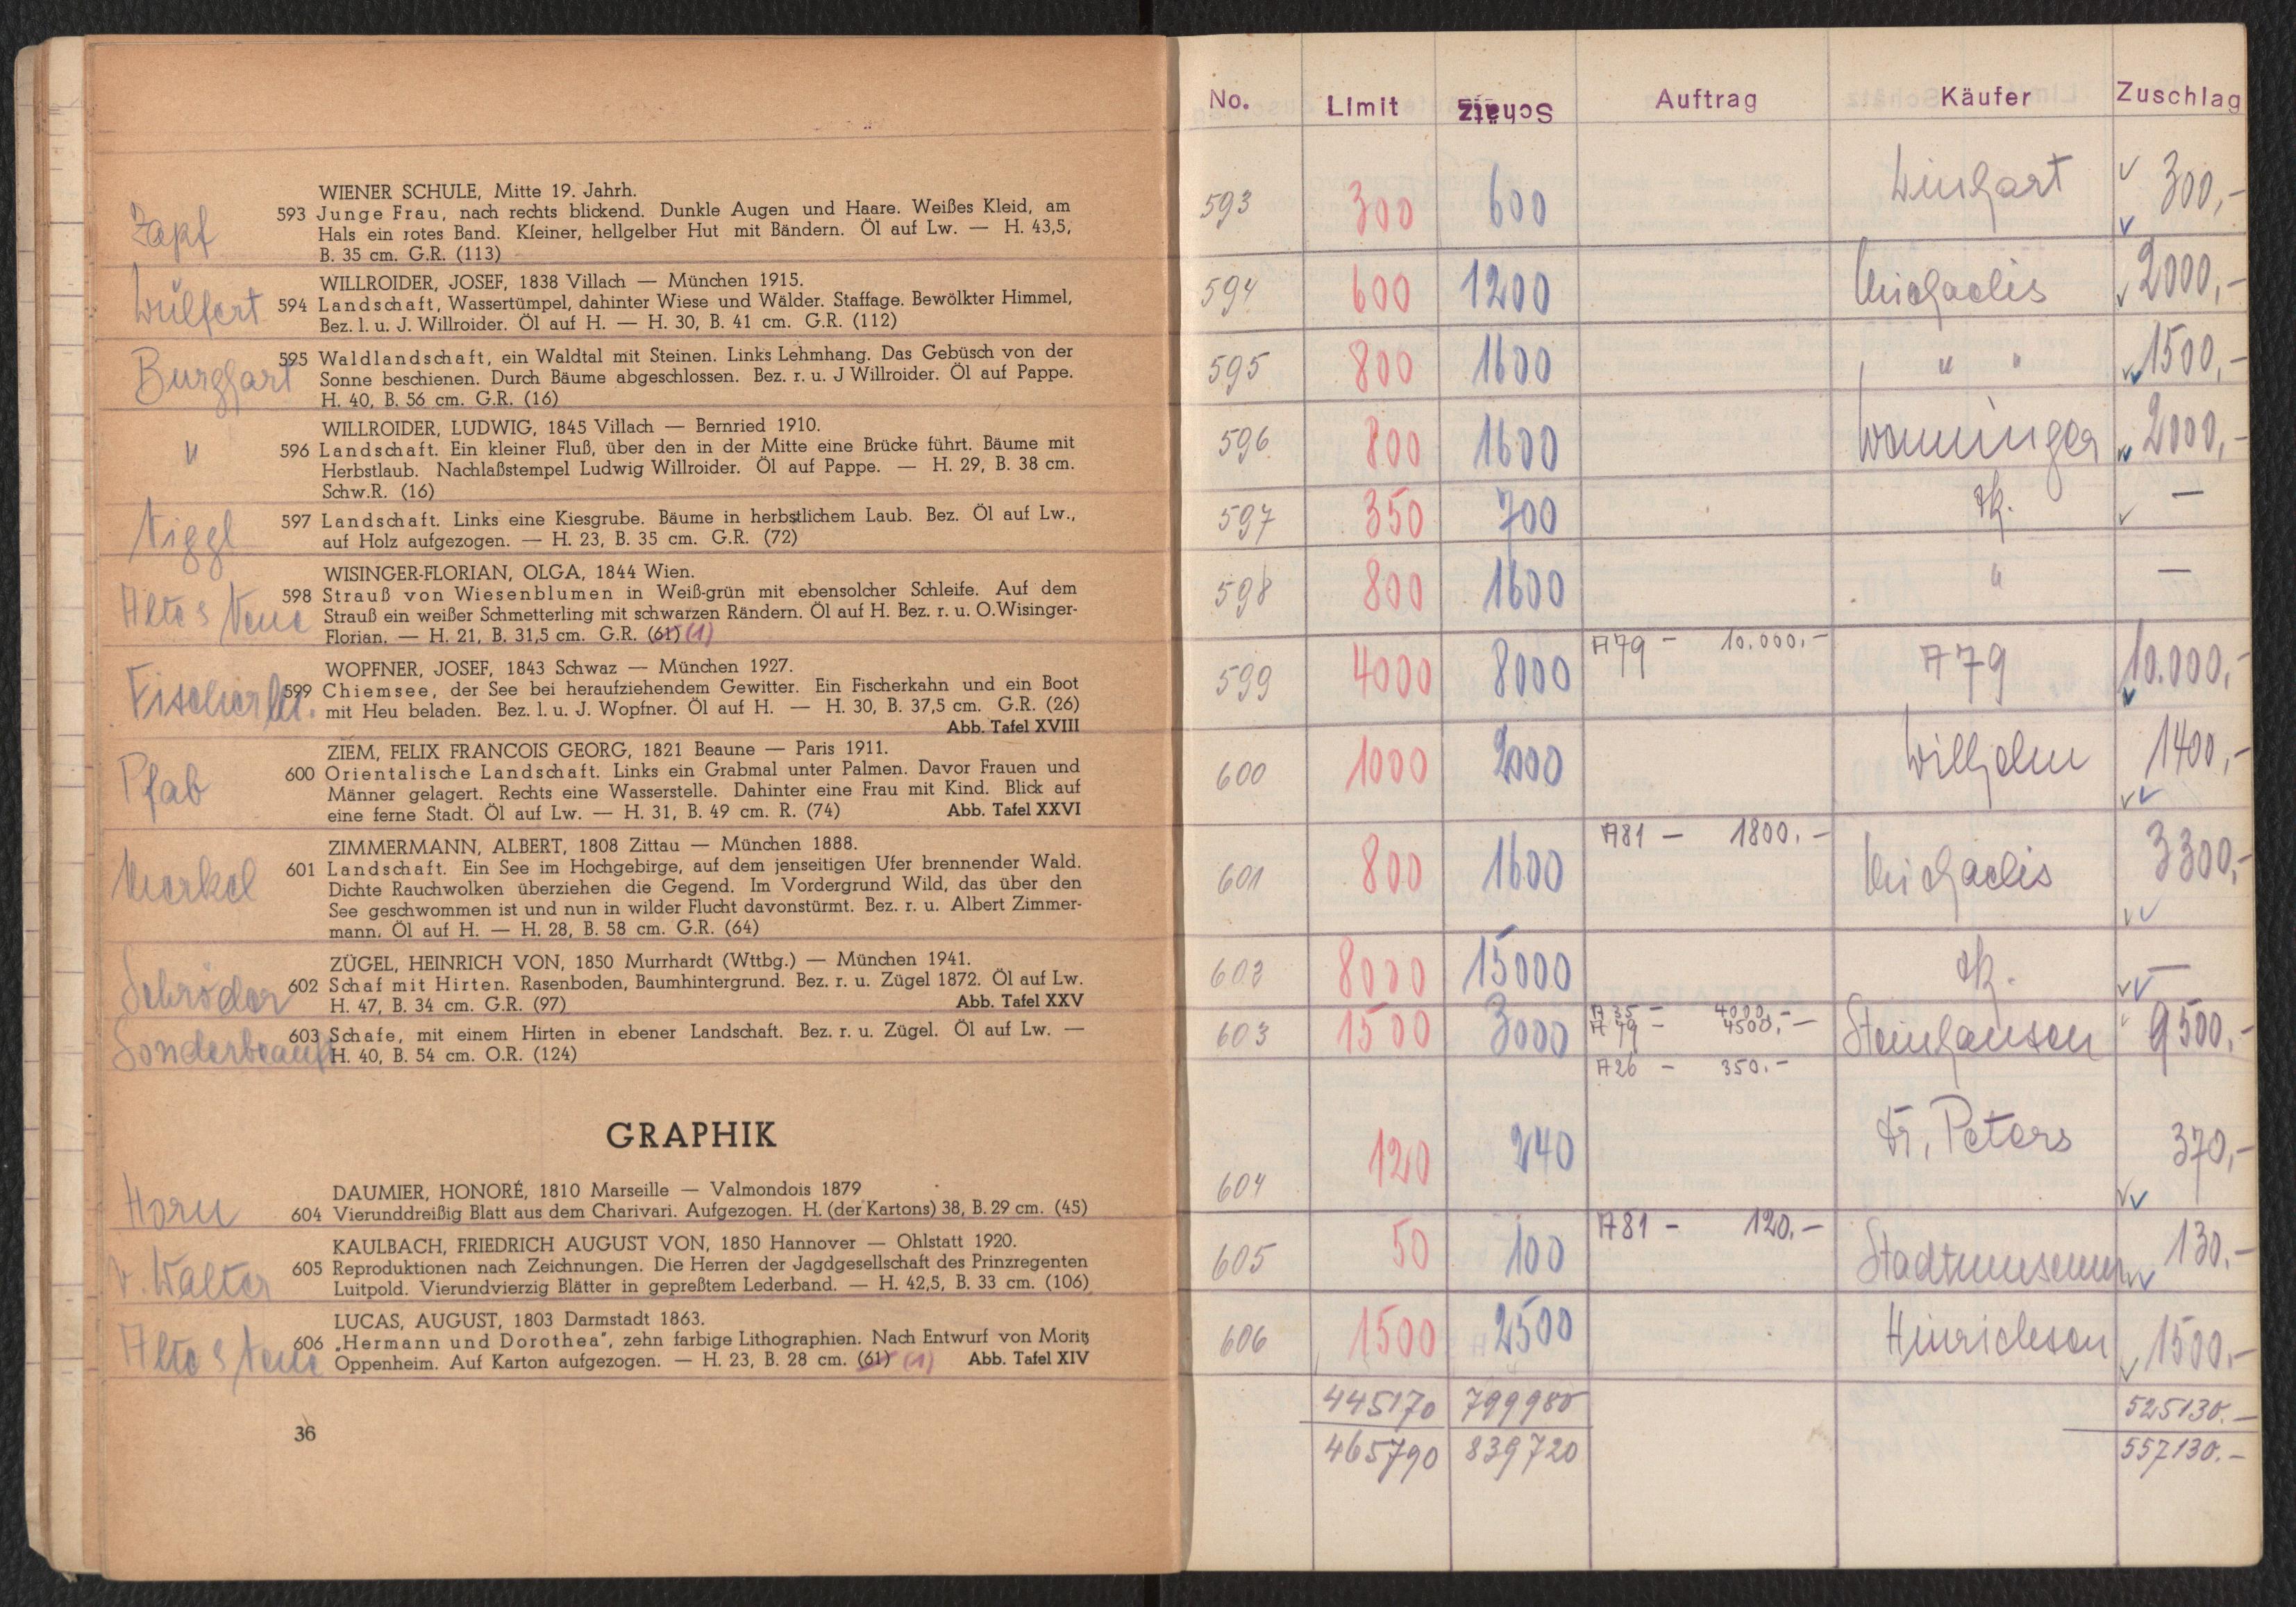 WIENER SCHULE, Mitte 19. Jahrh.
Zapf
593 Junge Frau, nach rechts blickend. Dunkle Augen und Haare. Weißes Kleid, am
Hals ein rotes Band. Kleiner, hellgelber Hut mit Bändern. Öl auf Lw. — H. 43,5,
B. 35 cm. G.R. (113)
WILLROIDER, JOSEF, 1838 Villach — München 1915.
Wülfert
594 Landschaft, Wassertümpel, dahinter Wiese und Wälder. Staffage. Bewölkter Himmel,
Bez. l. u. J. Willroider. Öl auf H. — H. 30, B. 41 cm. G.R. (112)
Burghart
595 Waldlandschaft, ein Waldtal mit Steinen. Links Lehmhang. Das Gebüsch von der
Sonne beschienen. Durch Bäume abgeschlossen. Bez. r. u. J Willroider. Öl auf Pappe.
H. 40, B. 56 cm. G.R. (16)
WILLROIDER, LUDWIG, 1845 Villach — Bernried 1910.
"
596 Landschaft. Ein kleiner Fluß, über den in der Mitte eine Brücke führt. Bäume mit
Herbstlaub. Nachlaßstempel Ludwig Willroider. Öl auf Pappe. — H. 29, B. 38 cm.
Schw.R. (16)
Niggl
597 Landschaft. Links eine Kiesgrube. Bäume in herbstlichem Laub. Bez. Öl auf Lw.,
auf Holz aufgezogen. — H. 23, B. 35 cm. G.R. (72)
WISINGER-FLORIAN, OLGA, 1844 Wien.
Alte & Neue
598 Strauß von Wiesenblumen in Weiß-grün mit ebensolcher Schleife. Auf dem
Strauß ein weißer Schmetterling mit schwarzen Rändern. Öl auf H. Bez. r. u. O.Wisinger-
Florian. — H. 21, B. 31,5 cm. G.R. (61) (1)
WOPFNER, JOSEF, 1843 Schwaz — München 1927.
599 Chiemsee, der See bei heraufziehendem Gewitter. Ein Fischerkahn und ein Boot
mit Heu beladen. Bez. l. u. J. Wopfner. Öl auf H. — H. 30, B. 37,5 cm. G.R. (26)
Abb. Tafel XVIII
ZIEM, FELIX FRANCOIS GEORG, 1821 Beaune — Paris 1911.
Pfab
600 Orientalische Landschaft. Links ein Grabmal unter Palmen. Davor Frauen und
Männer gelagert. Rechts eine Wasserstelle. Dahinter eine Frau mit Kind. Blick auf
eine ferne Stadt. Öl auf Lw. — H. 31, B. 49 cm. R. (74) Abb. Tafel XXVI
ZIMMERMANN, ALBERT, 1808 Zittau — München 1888.
Merkel
601 Landschaft. Ein See im Hochgebirge, auf dem jenseitigen Ufer brennender Wald.
Dichte Rauchwolken überziehen die Gegend. Im Vordergrund Wild, das über den
See geschwommen ist und nun in wilder Flucht davonstürmt. Bez. r. u. Albert Zimmer-
mann. Öl auf H. — H. 28, B. 58 cm. G.R. (64)
ZÜGEL, HEINRICH VON, 1850 Murrhardt (Wttbg.) — München 1941.
Schröder
602 Schaf mit Hirten. Rasenboden, Baumhintergrund. Bez. r. u. Zügel 1872. Öl auf Lw.
H. 47, B. 34 cm. G.R. (97) Abb. Tafel XXV
Sonderbeauft
603 Schafe, mit einem Hirten in ebener Landschaft. Bez. r. u. Zügel. Öl auf Lw. —
H. 40, B. 54 cm. O.R. (124)
GRAPHIK
DAUMIER, HONORÉ, 1810 Marseille — Valmondois 1879
Horn
604 Vierunddreißig Blatt aus dem Charivari. Aufgezogen. H. (der Kartons) 38, B. 29 cm. (45)
KAULBACH, FRIEDRICH AUGUST VON, 1850 Hannover — Ohlstatt 1920.
v. Walter
605 Reproduktionen nach Zeichnungen. Die Herren der Jagdgesellschaft des Prinzregenten
Luitpold. Vierundvierzig Blätter in gepreßtem Lederband. — H. 42,5, B. 33 cm. (106)
LUCAS, AUGUST, 1803 Darmstadt 1863.
Alte & Neue
606 „Hermann und Dorothea", zehn farbige Lithographien. Nach Entwurf von Moritz
Oppenheim. Auf Karton aufgezogen. — H. 23, B. 28 cm. (61) (1) Abb. Tafel XIV
36
No. Limit Schätz Auftrag Käufer Zuschlag
593 300 600 300,-
594 600 1200 Michaelis 2000,-
595 800 1600 " " 1500,-
596 800 1600 Wenninger 2000,-
597 350 700 —
598 800 1600 " —
599 4000 8000 A79 - 10.000.- A79 10.000,-
600 1000 2000 Wilhelm 1400,-
601 800 1600 A81 - 1800.- Michaelis 3300,-
602 8000 15000 —
603 1500 3000 A35 - 4000,- Steinhausen 9500,-
A79 - 4500,-
A26 - 350.-
604 120 240 Dr. Peters 370,-
605 50 100 A81 - 120.- Stadtmuseum 130.-
606 1500 2500 Hinrichsen 1500.-
445170 799980 525130.-
465790 839720 557130.-